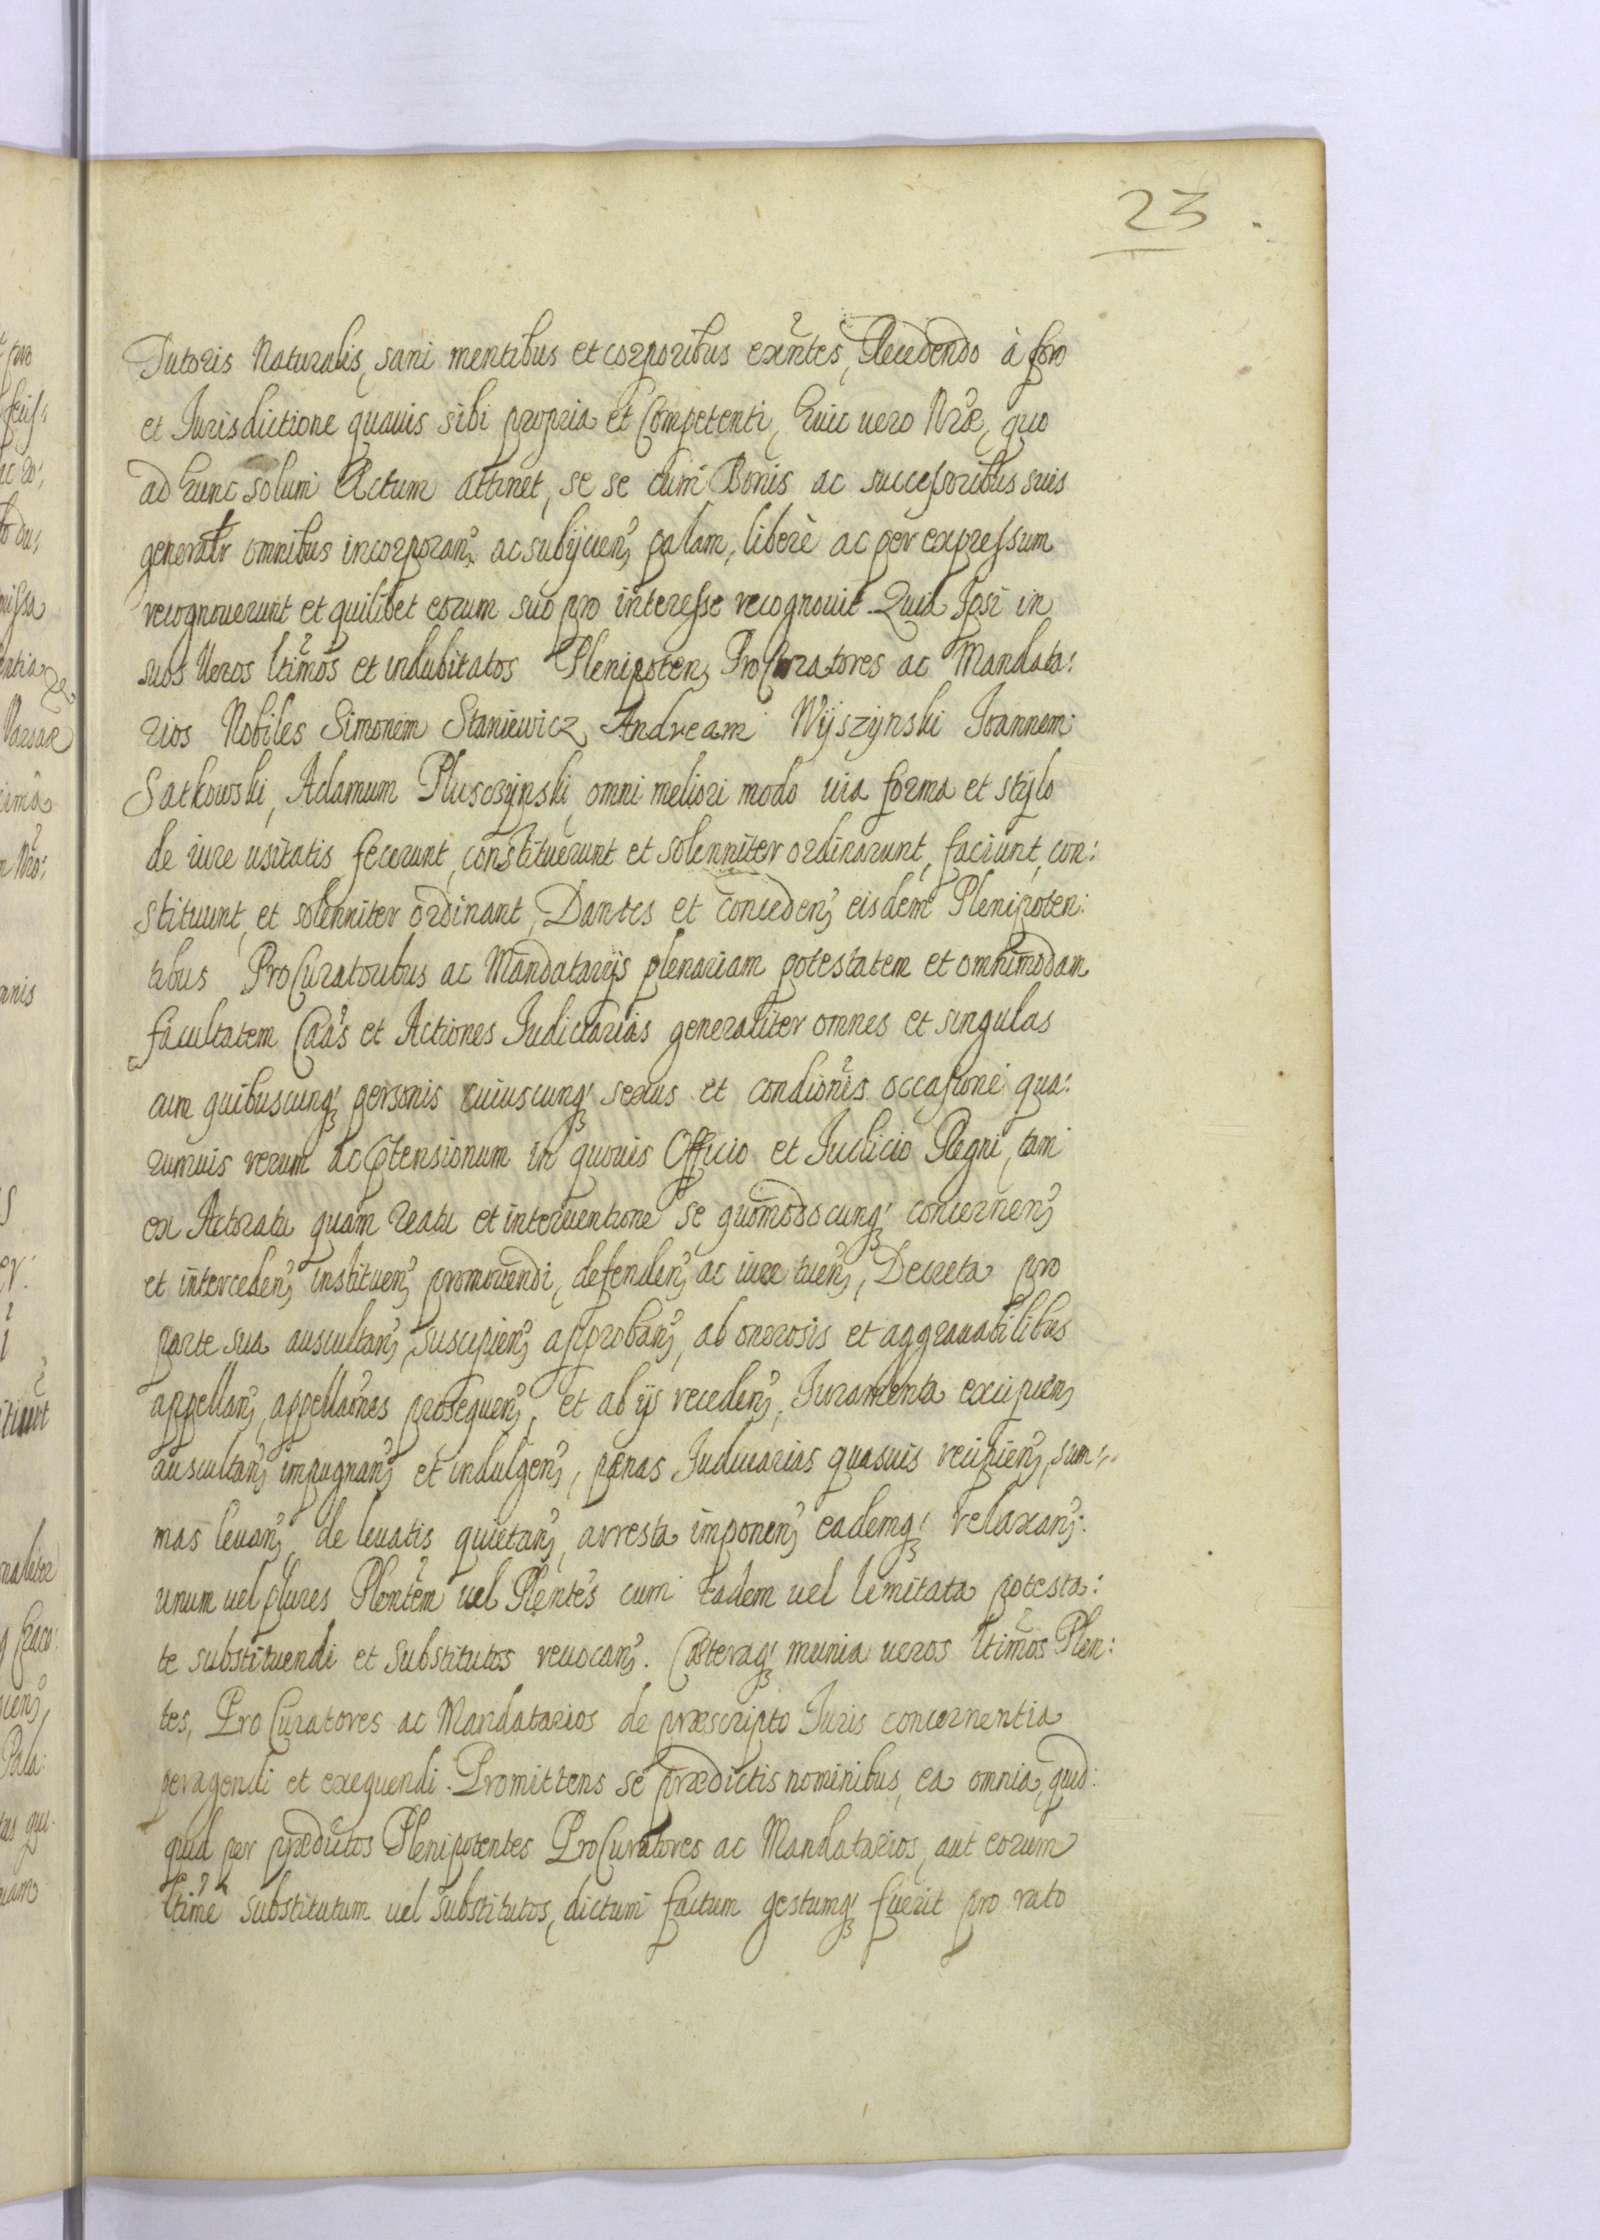 23
Tutoris Naturalis, sani mentibus et corporibus exñtes, Recedendo à foro
et Jurisdictione quauis sibi propria et Competenti, huic uero Nrae, quo
ad hunc solum Actum attinet, se se cum Bonis ac successoribus suis
generalr omnibus incorporanꝫ ac subijcienꝫ palam, liberè ac per expressum
recognouerunt et quilibet eorum suo pro interesse recognouit. Quia Ipsi in
suos Ueros ltimos et indubitatos Plenipotenꝫ ProCuratores ac Mandata:
rios Nobiles Simonem Staniewicz, Andream Wyszynski Joannem
Satkowski, Adamum Plusczynski, omni meliori modo uia forma et stylo
de iure usitatis fecerunt, constituerunt et solenniter ordinarunt, faciunt, con:
stituunt, et solenniter ordinant, Dantes et concedenꝫ eisdem Plenipoten:
tibus ProCuratoribus ac Mandatarijs plenariam potestatem et omnimodam
facultatem Caas et Actiones Judiciarias generaliter omnes et singulas
cum quibuscunqꝫ personis cuiuscunqꝫ sexus et condionis occasione qua:
rumuis rerum ac ptensionum in quouis Officio et Judicio Regni, tam
ex Actoratu quam reatu et interuentione se quomodocunqꝫ concernenꝫ
et intercedenꝫ instituenꝫ promouendi, defendenꝫ ac iure tuenꝫ, Decreta pro
parte sua auscultanꝫ, suscipienꝫ approbanꝫ, ab onerosis et aggrauabilibus
appellanꝫ, appellaones prosequenꝫ, et ab ijs recedenꝫ, Juramenta excipienꝫ
auscultanꝫ impugnanꝫ et indulgenꝫ, paenas Judiciarias quasuis recipienꝫ, sum:
mas leuanꝫ, de leuatis quietanꝫ, arresta imponenꝫ eademqꝫ relaxanꝫ.
unum uel plures Plentem uel Plentes cum eadem uel limitata potesta:
te substituendi et substitutos reuocanꝫ. Caeteraqꝫ munia ueros ltimos Plen:
tes, ProCuratores ac Mandatarios de praescripto Juris concernentia
peragendi et exequendi. Promittens se praedictis nominibus, ea omnia, quid:
quid per praedictos Plenipotentes ProCuratores ac Mandatarios, aut eorum
ltime substitutum uel substitutos, dictum factum gestumqꝫ fuerit pro rato